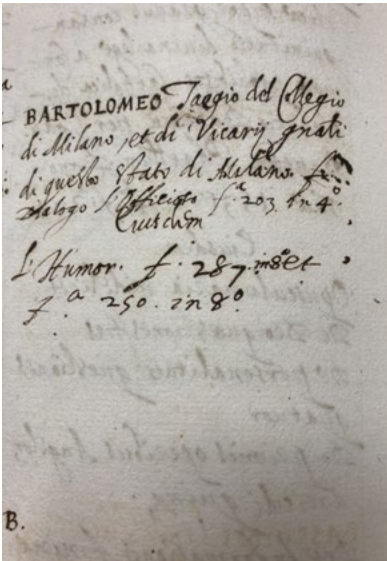 BARTOLOMEO Taegio del Collegio
di Milano, et di Vicarij gnali
di questo stato di Milano.
Dialogo L'Officioso f.ª 203 in 4º.
Eiusdem
L'Humor. f. 287. in 8º et
f.ª 250. in 8º
B.